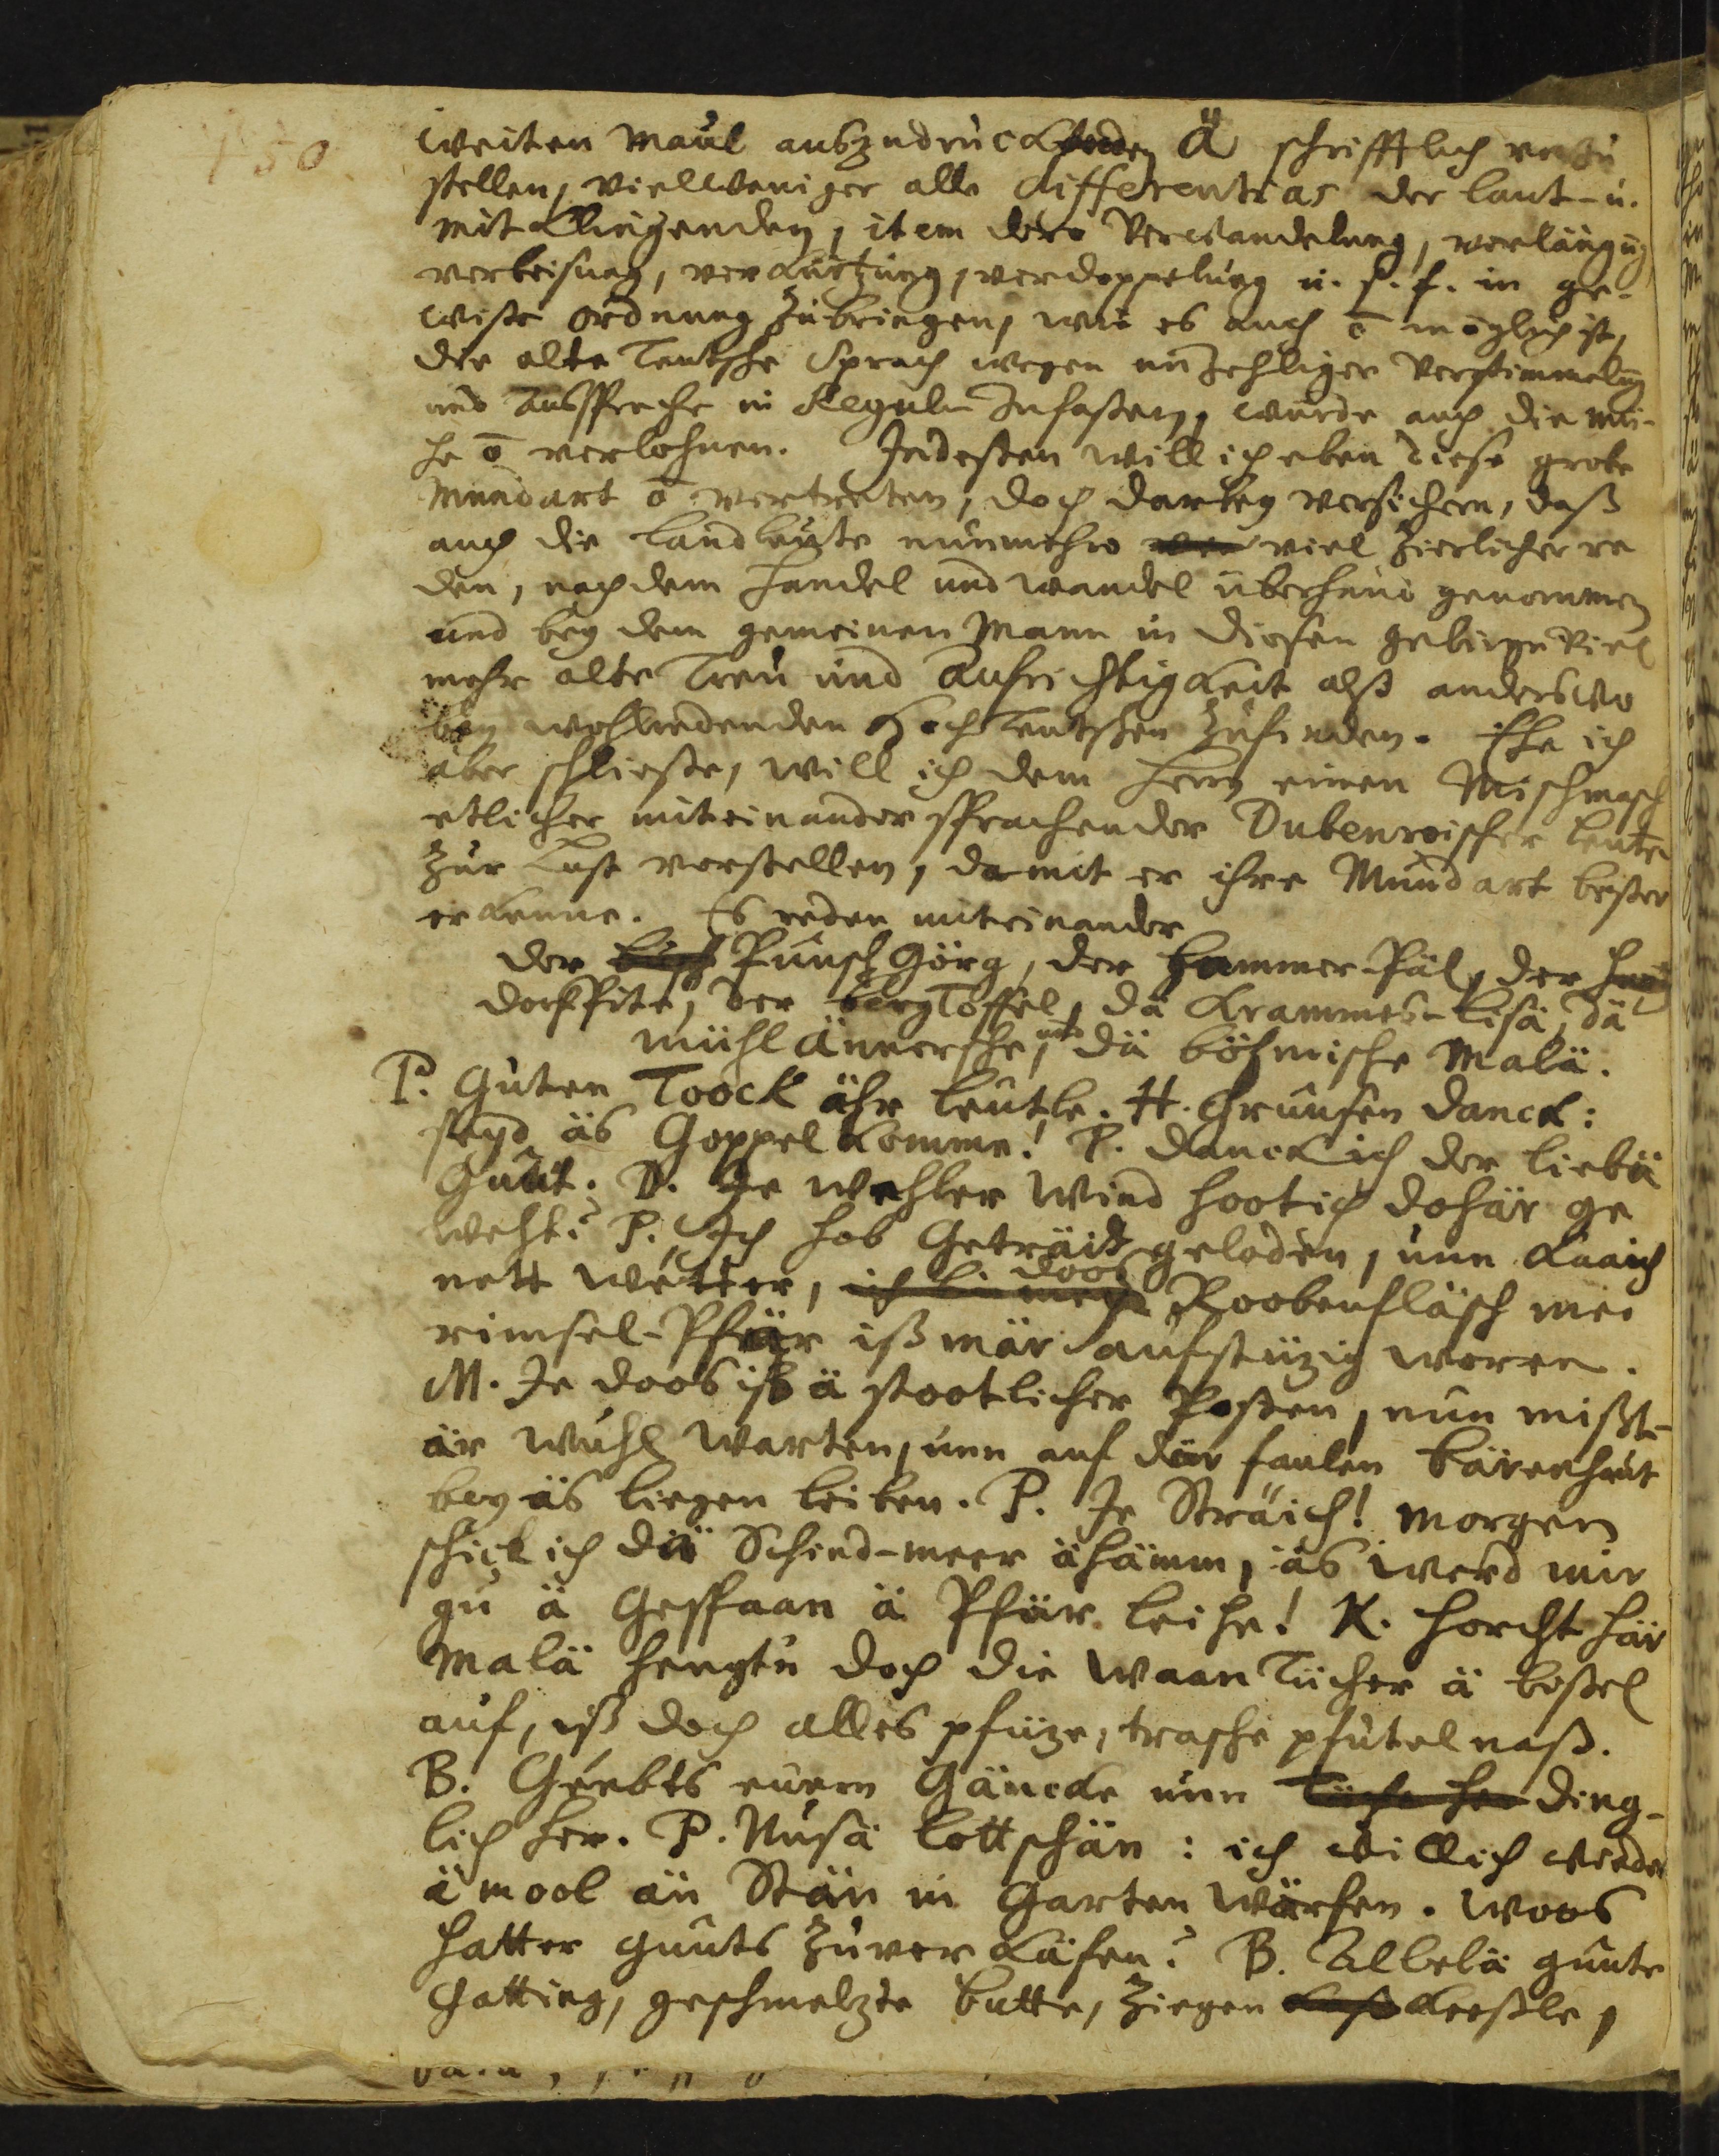 150
weiten Maul auszudrückenden Ä schrifftlich
stellen, vielweniger alle differentias der laut- u.
mit klingenden, item dero Verwandelung, verlängūg
verbeisung, verkürtzung, verdoppelung u. s. f. in ge-
wisse ordnung zubringen, wie es auch ō möglich ist,
die alte Teutsche Sprach wegen unzehliger Verstimmelūg
und Aussprache in Reguln zufassen, würde auch die mü-
he ō verlohnen. Indessen will ich eben diese grobe
Mundart ō vertreten, doch darbey versichern, daß
auch die landleute nunmehro viel zierlicher re
den, nachdem handel und wandel überhand genommen
und bey dem gemeinen Mann in diesen gebirge viel
mehr alte Treu und Aufrichtigkeit alß anderswo
bey wohlredenden Hochteutschen zufinden. Ehe ich
aber schliesse, will ich dem Herrn einen Mischmasch
etlicher miteinander sprachender Dubenroischer leute
zur Lust vorstellen, damit er ihre Mundart besser
erkenne. Es reden miteinander
der Punsch Görg, der Hammer-Päl, der
dorffite, der berg Toffel, dä Krammes-Lisä, dä
Mühl Ännersche, und dä böhmische Malä.
P. Guten Toock ähr leutle. H. Gruusen danck:
seyd äs Goppel komme! P. danck ich der liebä
Guut. D. Je wehler Wind hootich dohär ge
weht? P. Ich hob Geträidt geloden, unn kaaich
nett wetter, doos Roobenfläsch mei
rimsel-Pfär iß mär aufstüzig woren.
M. Je doos iß ä stootlicher Posten, nun misst-
är wuhl warten, unn auf där faulen bärenhaut
bey äs liegen leiben. P. Je Sträich! morgen
schick ich diä Schind-meer ähämm, äs werd mir
gu ä Gespaan ä Pfär leihe! K. horcht här
Malä hengtu doch die Waan Tücher ä bessel
auf, iß doch alles pfüze, trasche pfudel naß.
B. Geebts euern Gäncke unn ding-
lich her. P. Nusä lott schän: ich will ich wieder
ä mool än Stän in Garten wärfen. woos
hatter guuts zuver käfen? B. Allelä guute
Gatting, geschmelzte butte, ziegen keeßle,